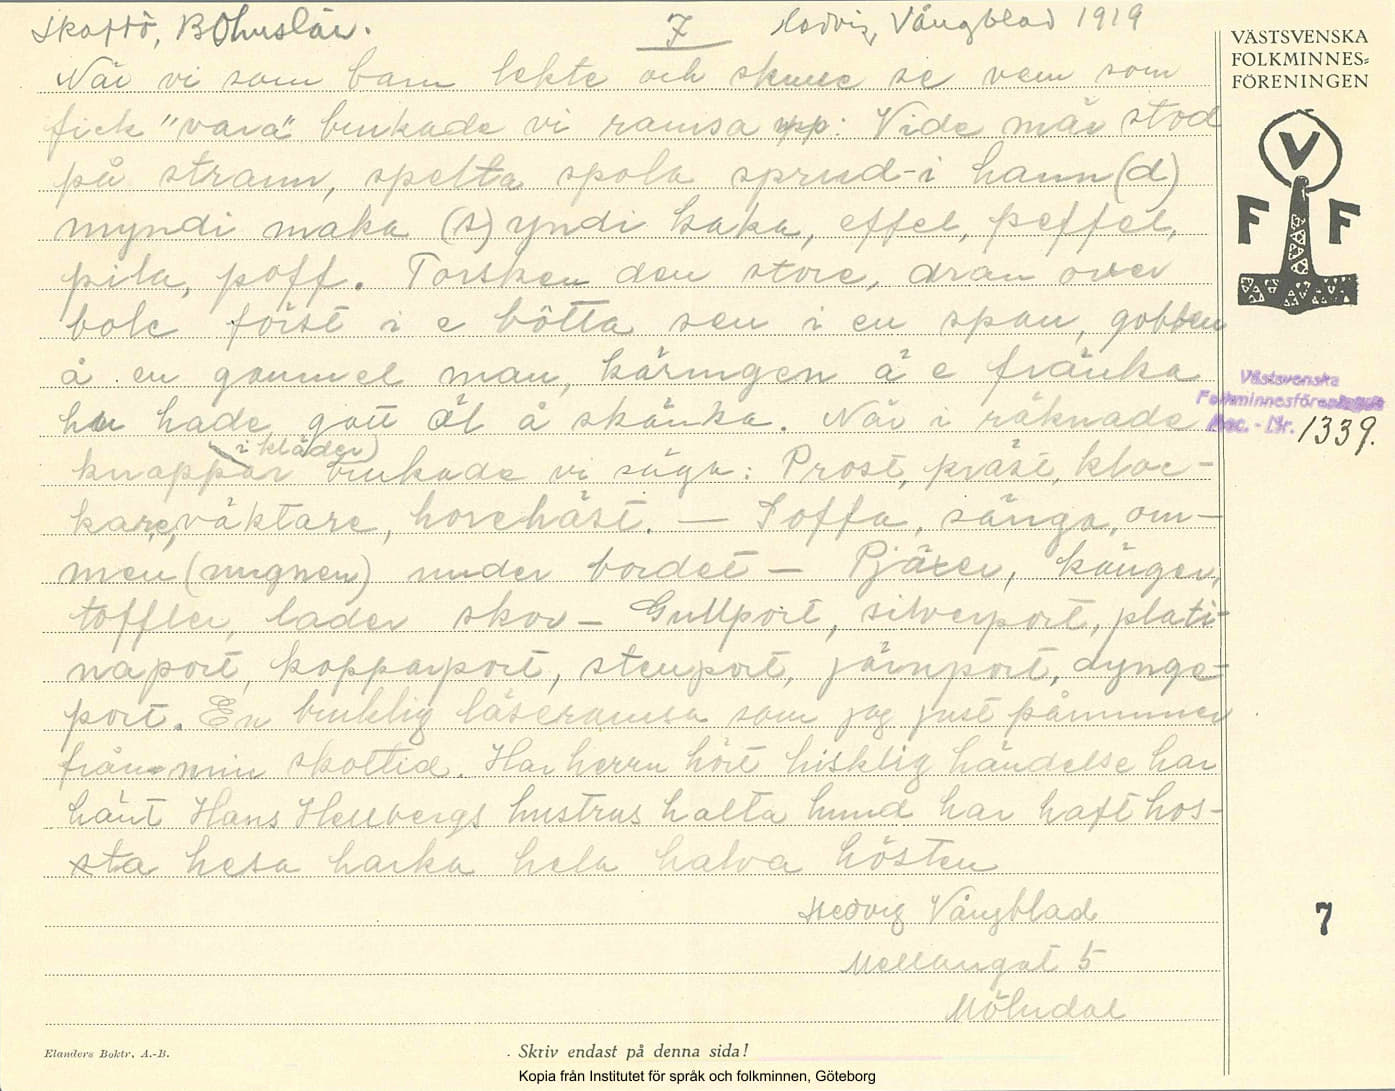 Skaftö, Bohuslän.
7
Hedvig Vångblad 1919
VÄSTSVENSKA
FOLKMINNES=
FÖRENINGEN
När vi som barn lekte och skulle se vem som
fick "vara" brukade vi ramsa upp: Vide mär stod
på strann, spelta spola sprud-i hann(d)
myndi maka (s)yndi kaka, effel, peffel,
pila, poff. Torsken den store, dran över
bole först i e bötta sen i en span, gobben
å en gammel man, käringen å e fränka
hu hade gott öl å skänka. När i räknade
knappar (i kläder) brukade vi säga: Prost, präst, kloc-
kare, väktare, horehäst. — Soffa, sänga, om-
men (ungnen) under bordet — Pjäxer, känger,
töffler, lader skor — Gullport, silverport, plati-
naport, kopparport, stenport, järnport, dynge-
port. En bruklig läseramsa som jag just påminner
från min skoltid. Har herrn hört hisklig händelse har
hänt Hans Hellbergs hustrus halta hund har haft hos-
sta hesa harka hela halva hösten
Hedvig Vångblad
Mellangat 5
Mölndal
V
F F
Västsvenska
Folkminnesföreningen
Acc. - Nr. 1339.
7
Elanders Boktr. A.-B.
Skriv endast på denna sida!
Kopia från Institutet för språk och folkminnen, Göteborg